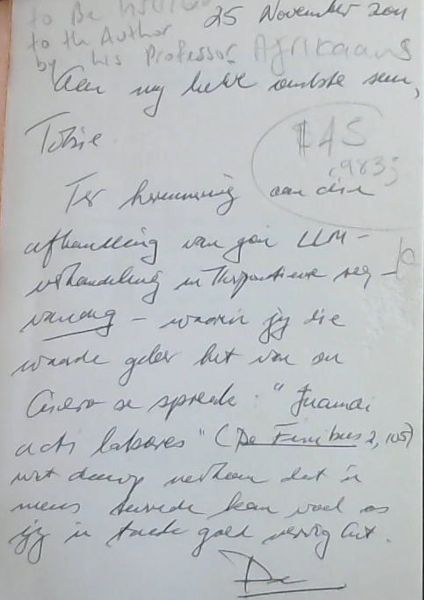 to Be
to the Author 25 November 2011
by his Professor Afrikaans
Aan my liewe oudste seun,
Tobie
$45
983
Ter herinnering aan die
afhandeling van jou LLM-
verhandeling in
vandag - waarin jy die
waarde geleer het van
Cicero se spreuk: "Jucundi
acti labores" (De Finibus 2, 105)
wat daarop neerkom dat 'n
mens tevrede kan voel as
jy 'n taak goed verrig het.